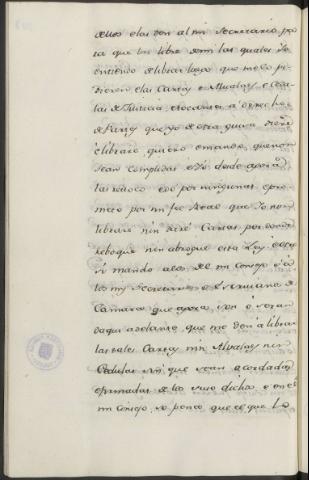 dellos elas den al mi Secretario pa
ra que las libre demi las quales Io
entiendo de librar luego que melo pi
dieren elas Cartas e Alvalaes e Cedu
las de Justicia etocantes a derecho
de partes que yo de otra guisa diere
e librare quiero emando que non
sean complidas e Io desde agora
las revoco edo por ningunas e pro
meto por mi fee Real que Io non
librare nin dare Cartas por donde
reboque nin abrogue esta Ley e otro
si mando alos del mi Consejo e a
los mis Secretarios e Escrivanos de
Camara que agora son o seran
daqui adelante que me den a librar
las tales Cartas nin Alvalaes nin
Cedulas sin que sean acordadas
efirmadas de lo suso dicho, e en el
mi Consejo, so pena que el que lo